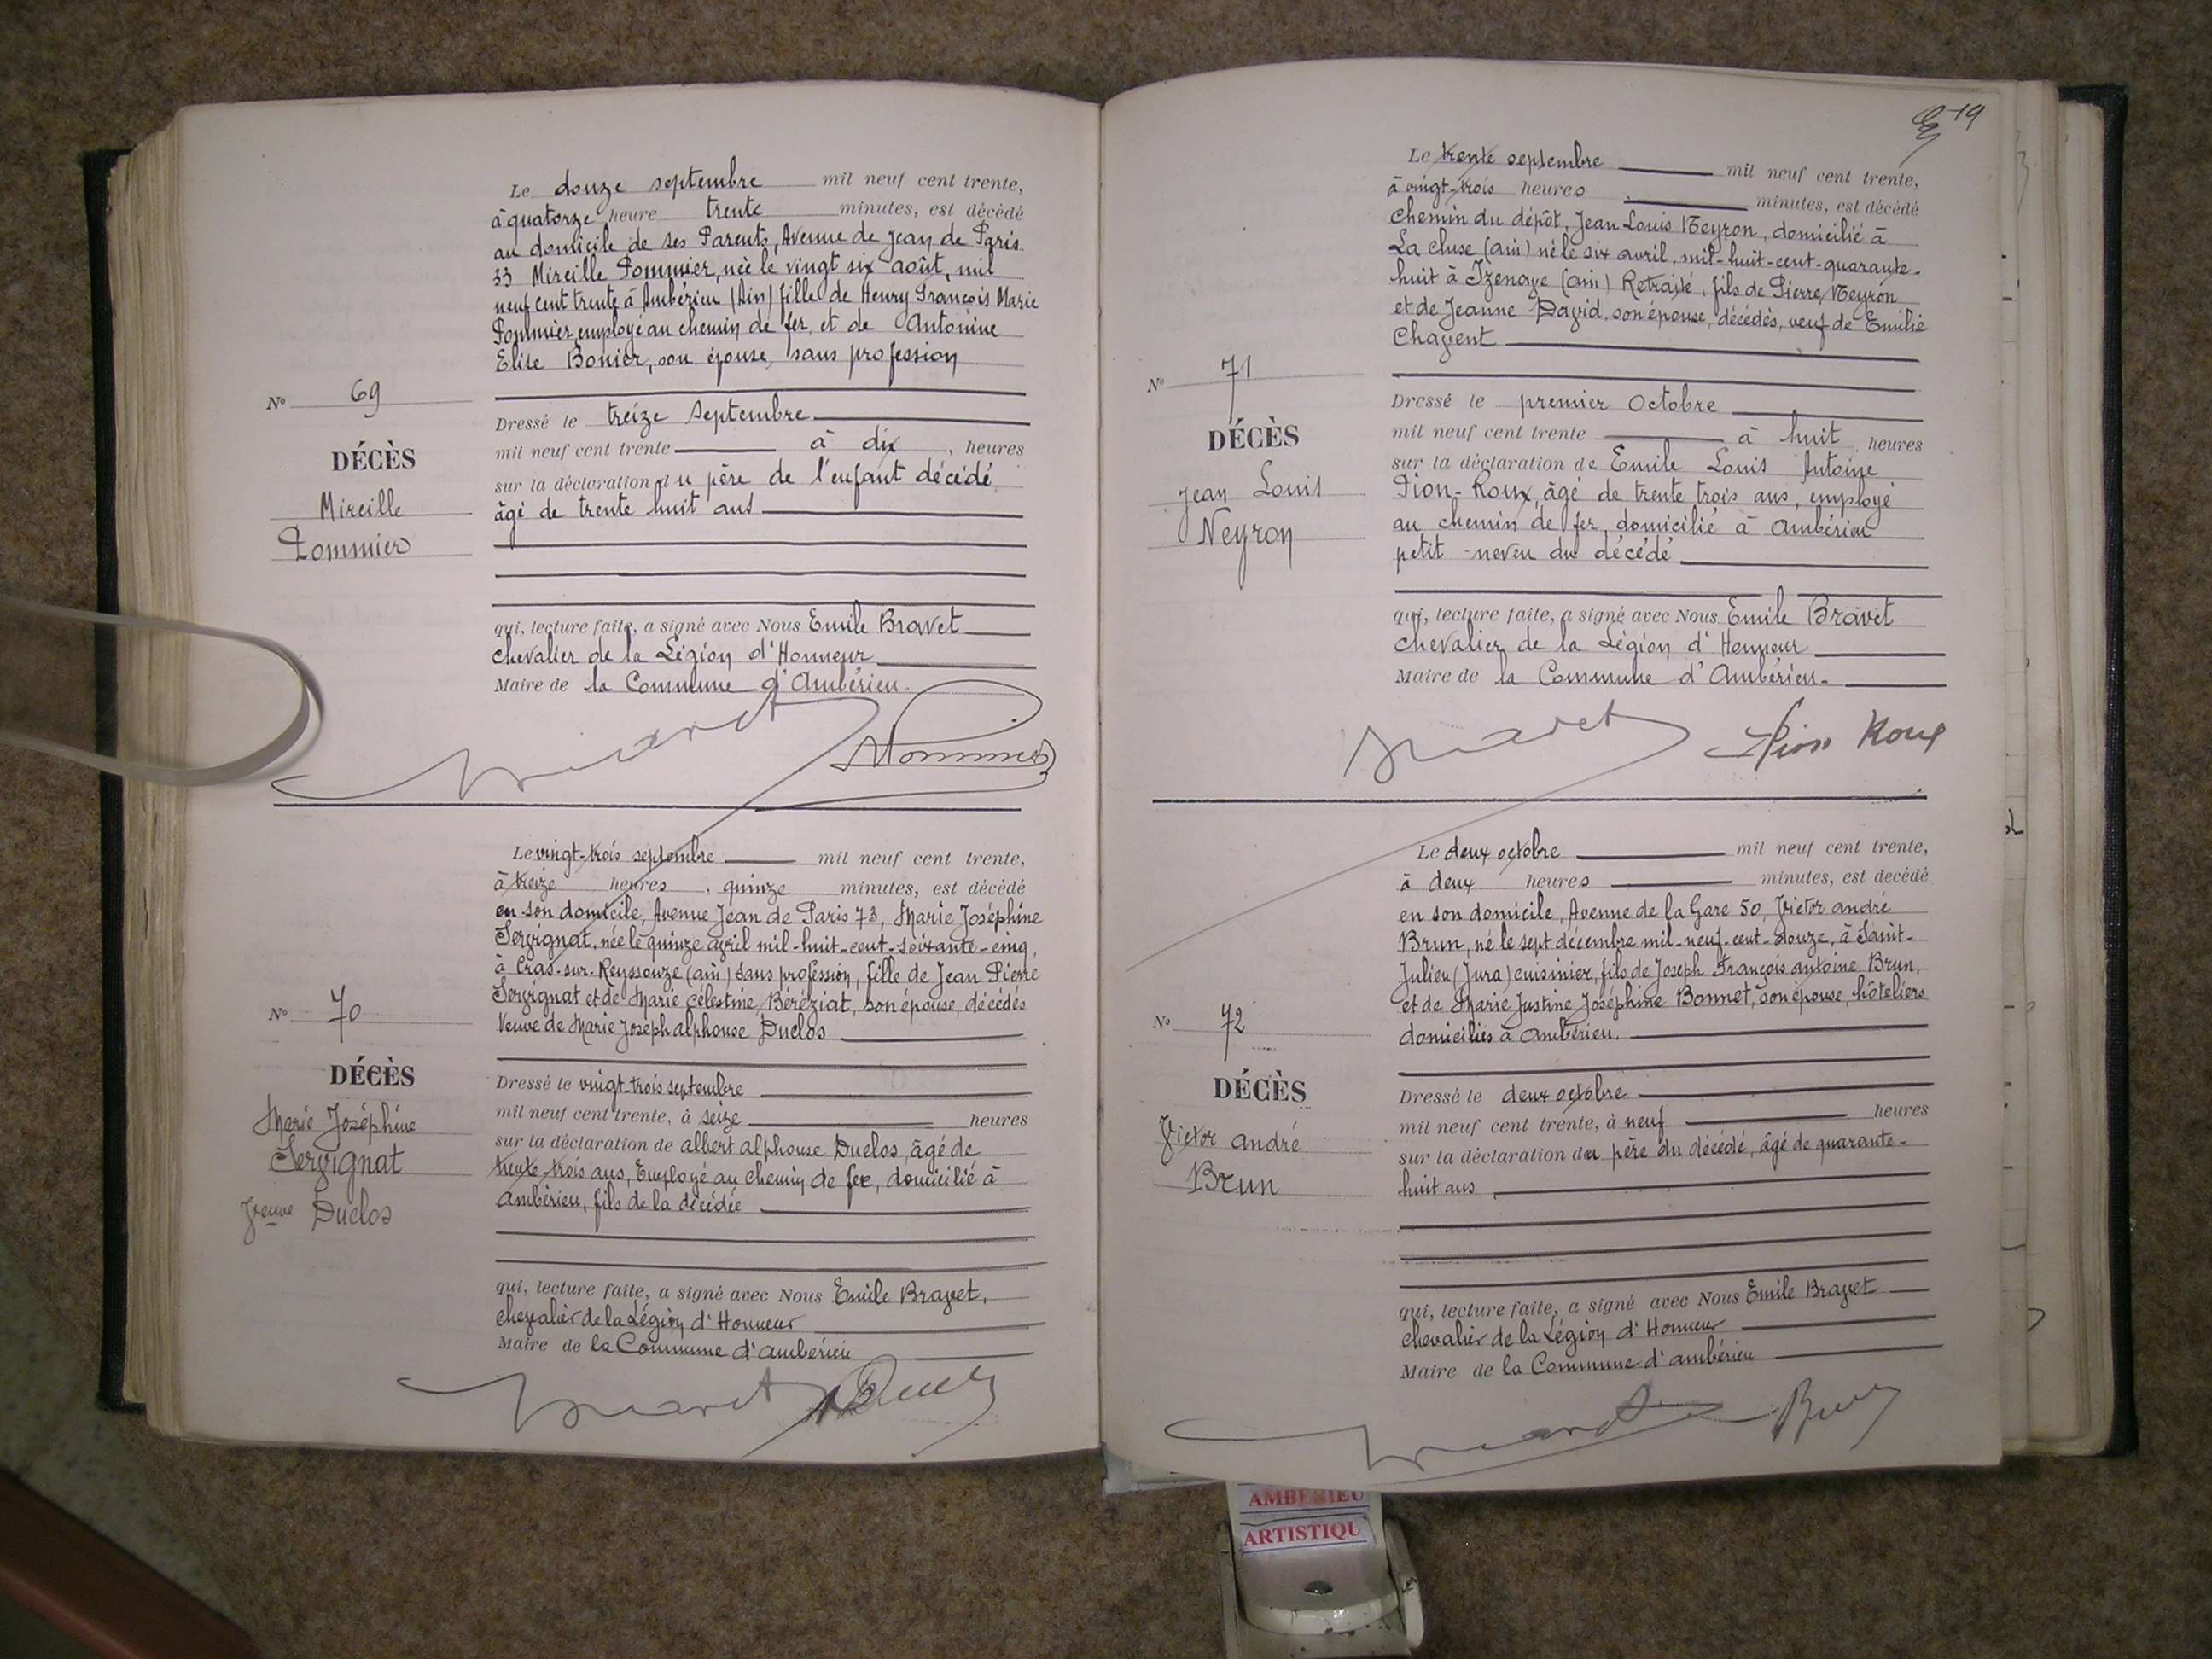 Le douze septembre mil neuf cent trente,
à quatorze heure trente minutes, est décédé
au domicile de ses Parents, Avenue de Jean de Paris
33 Mireille Pommier, née le vingt six août, mil
neuf cent trente à Ambérieu (Ain) fille de Henry François Marie
Pommier, employé au chemin de fer, et de Antonine
Elise Bonier, son épouse, sans profession
N° 69
DÉCÈS
Mireille
Pommier
Dressé le treize septembre
mil neuf cent trente à dix heures
sur la déclaration du père de l'enfant décédé
âgé de trente huit ans
qui, lecture faite, a signé avec Nous Emile Bravet
chevalier de la Légion d'Honneur
Maire de la Commune d'Ambérieu.
Bravet Pommier
Le vingt-trois septembre mil neuf cent trente,
à treize heures, quinze minutes, est décédé
en son domicile, Avenue Jean de Paris 73, Marie Joséphine
Servignat, née le quinze avril mil-huit-cent-soixante-cinq
à Cras-sur-Reyssouze (ain) sans profession, fille de Jean Pierre
Servignat et de Marie Célestine Béréziat, son épouse, décédés
Veuve de Marie Joseph alphonse Duclos
N° 70
DÉCÈS
Marie Joséphine
Servignat
Veuve Duclos
Dressé le vingt-trois septembre
mil neuf cent trente, à seize heures
sur la déclaration de albert alphonse Duclos, âgé de
trente-trois ans, Employé au chemin de fer, domicilié à
ambérieu, fils de la décédée
qui, lecture faite, a signé avec Nous Emile Bravet,
chevalier de la Légion d'Honneur
Maire de la Commune d'ambérieu
Bravet
19
Le trente septembre mil neuf cent trente,
à vingt-trois heures minutes, est décédé
chemin du dépôt, Jean Louis Neyron, domicilié à
La Cluse (ain) né le six avril, mil-huit-cent-quarante-
huit à Izenave (ain) Retraité, fils de Pierre Neyron
et de Jeanne David, son épouse, décédés, veuf de Emilie
Chavent
N° 71
DÉCÈS
Jean Louis
Neyron
Dressé le premier Octobre
mil neuf cent trente à huit heures
sur la déclaration de Emile Louis Antoine
Pion-Roux, âgé de trente trois ans, employé
au chemin de fer, domicilié à Ambérieu
petit-neveu du décédé
qui, lecture faite, a signé avec Nous Emile Bravet
chevalier de la Légion d'Honneur
Maire de la Commune d'Ambérieu.
Bravet Pion Roux
Le deux octobre mil neuf cent trente,
à deux heures minutes, est decédé
en son domicile, Avenue de la Gare 50, Victor andré
Brun, né le sept décembre mil-neuf-cent-douze, à Saint-
Julien (Jura) cuisinier, fils de Joseph François antoine Brun,
et de Marie Justine Joséphine Bonnet, son épouse, hôteliers
domiciliés à ambérieu.
N° 72
DÉCÈS
Victor andré
Brun
Dressé le deux octobre
mil neuf cent trente, à neuf heures
sur la déclaration du père du décédé, âgé de quarante-
huit ans
qui, lecture faite, a signé avec Nous Emile Bravet
chevalier de la Légion d'Honneur
Maire de la Commune d'ambérieu
Bravet Brun
AMBERIEU
ARTISTIQU